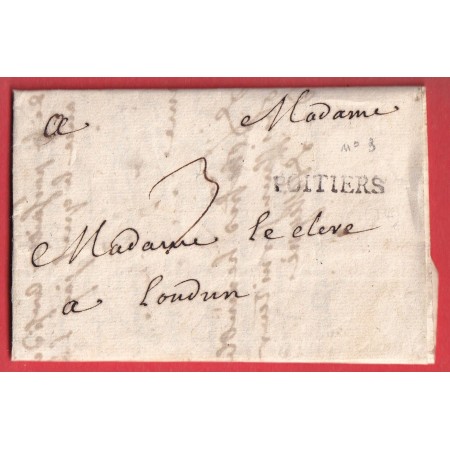 A Madame
n° 3
POITIERS
3
Madame le clere
a loudun